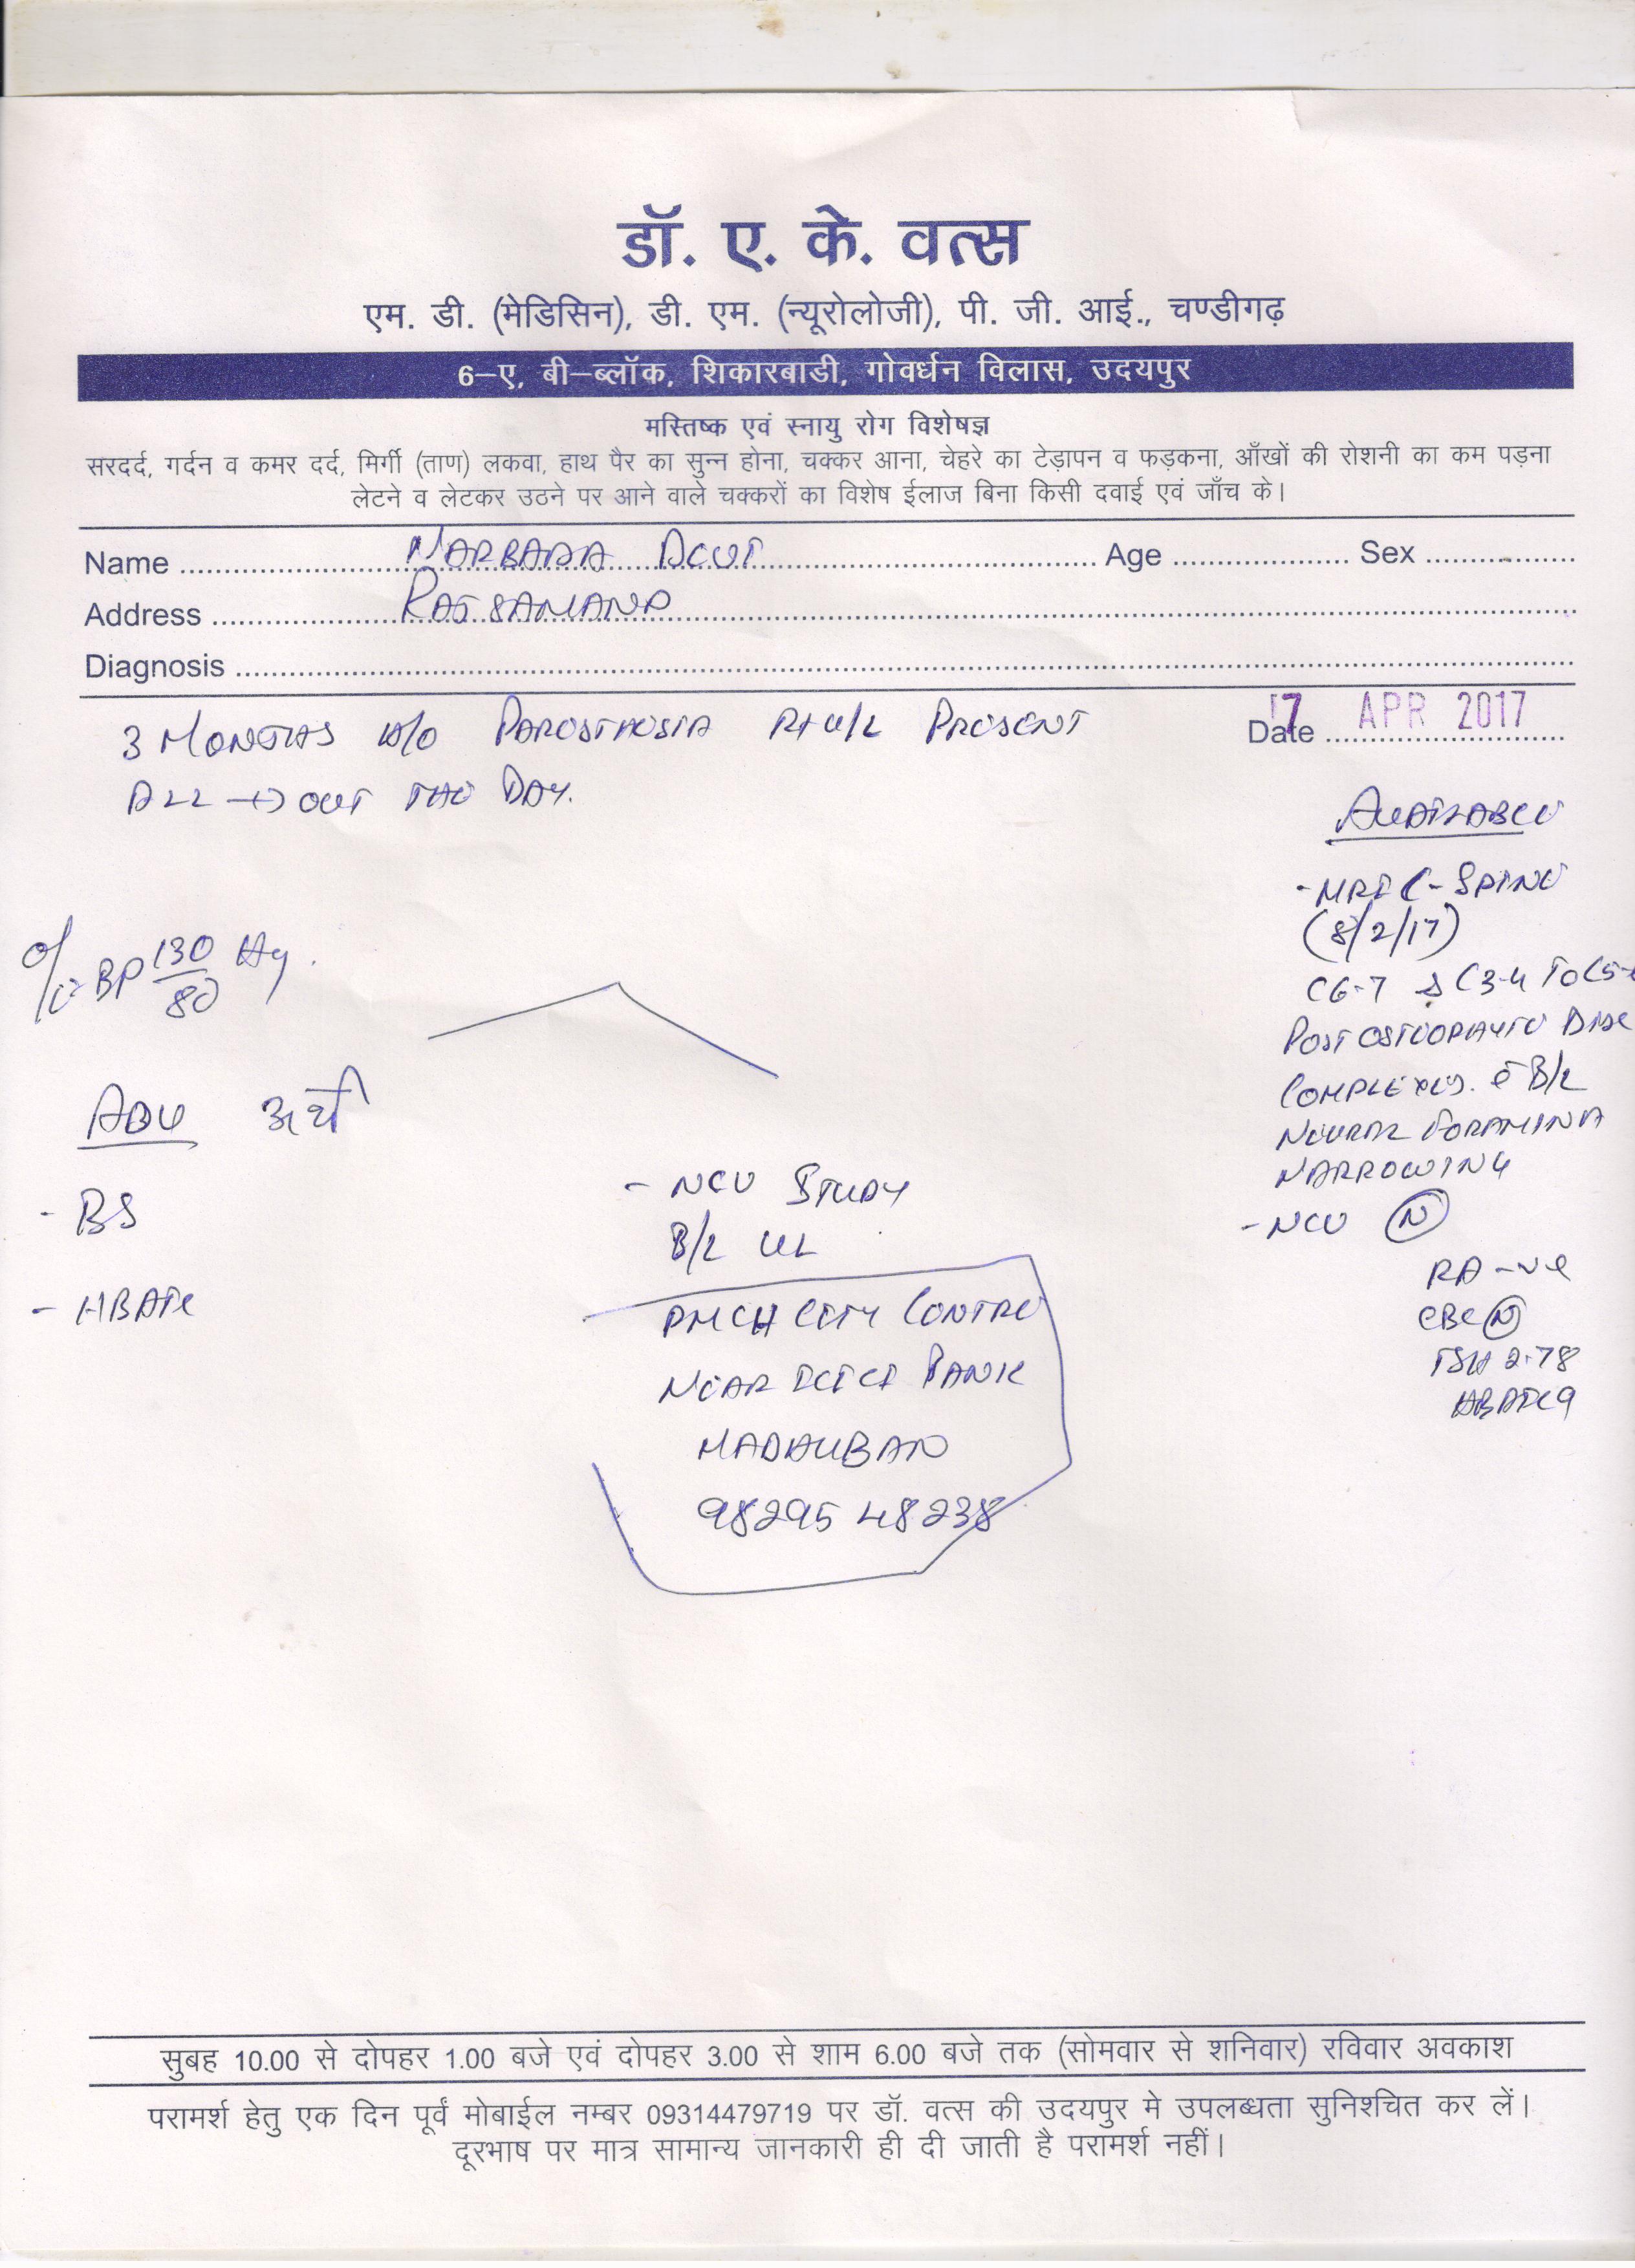 डॉ. ए. के. वत्स
एम. डी. (मेडिसिन), डी. एम. (न्यूरोलोजी), पी. जी. आई., चण्डीगढ़
6–ए, बी–ब्लॉक, शिकारबाडी, गोवर्धन विलास, उदयपुर
मस्तिष्क एवं स्नायु रोग विशेषज्ञ
सरदर्द, गर्दन व कमर दर्द, मिर्गी (ताण) लकवा, हाथ पैर का सुन्न होना, चक्कर आना, चेहरे का टेड़ापन व फड़कना, आँखों की रोशनी का कम पड़ना
लेटने व लेटकर उठने पर आने वाले चक्करों का विशेष ईलाज बिना किसी दवाई एवं जाँच के।
Name NARBADA DEVI Age Sex
Address RAJSAMAND
Diagnosis
Date 17 APR 2017
3 MONTHS H/O PARESTHESIA RT U/L PRESENT
ALL → OUT THE DAY.
AVAILABLE
- MRI C-SPINE
(8/2/17)
C6-7 & C3-4 TO C5-6
POST OSTEOPHYTE DISC
COMPLEXES. c̄ B/L
NEURAL FORAMINA
NARROWING
- NCV (N)
RA -ve
CBC (N)
TSH 2.78
HBA1C 9
O/E BP 130/80 Hg.
ADV अर्थ
- BS
- HBA1C
- NCV STUDY
B/L UL
PMCH CITY CENTRE
NEAR ICICI BANK
MADHUBAN
98295 48238
सुबह 10.00 से दोपहर 1.00 बजे एवं दोपहर 3.00 से शाम 6.00 बजे तक (सोमवार से शनिवार) रविवार अवकाश
परामर्श हेतु एक दिन पूर्वं मोबाईल नम्बर 09314479719 पर डॉ. वत्स की उदयपुर मे उपलब्धता सुनिश्चित कर लें।
दूरभाष पर मात्र सामान्य जानकारी ही दी जाती है परामर्श नहीं।